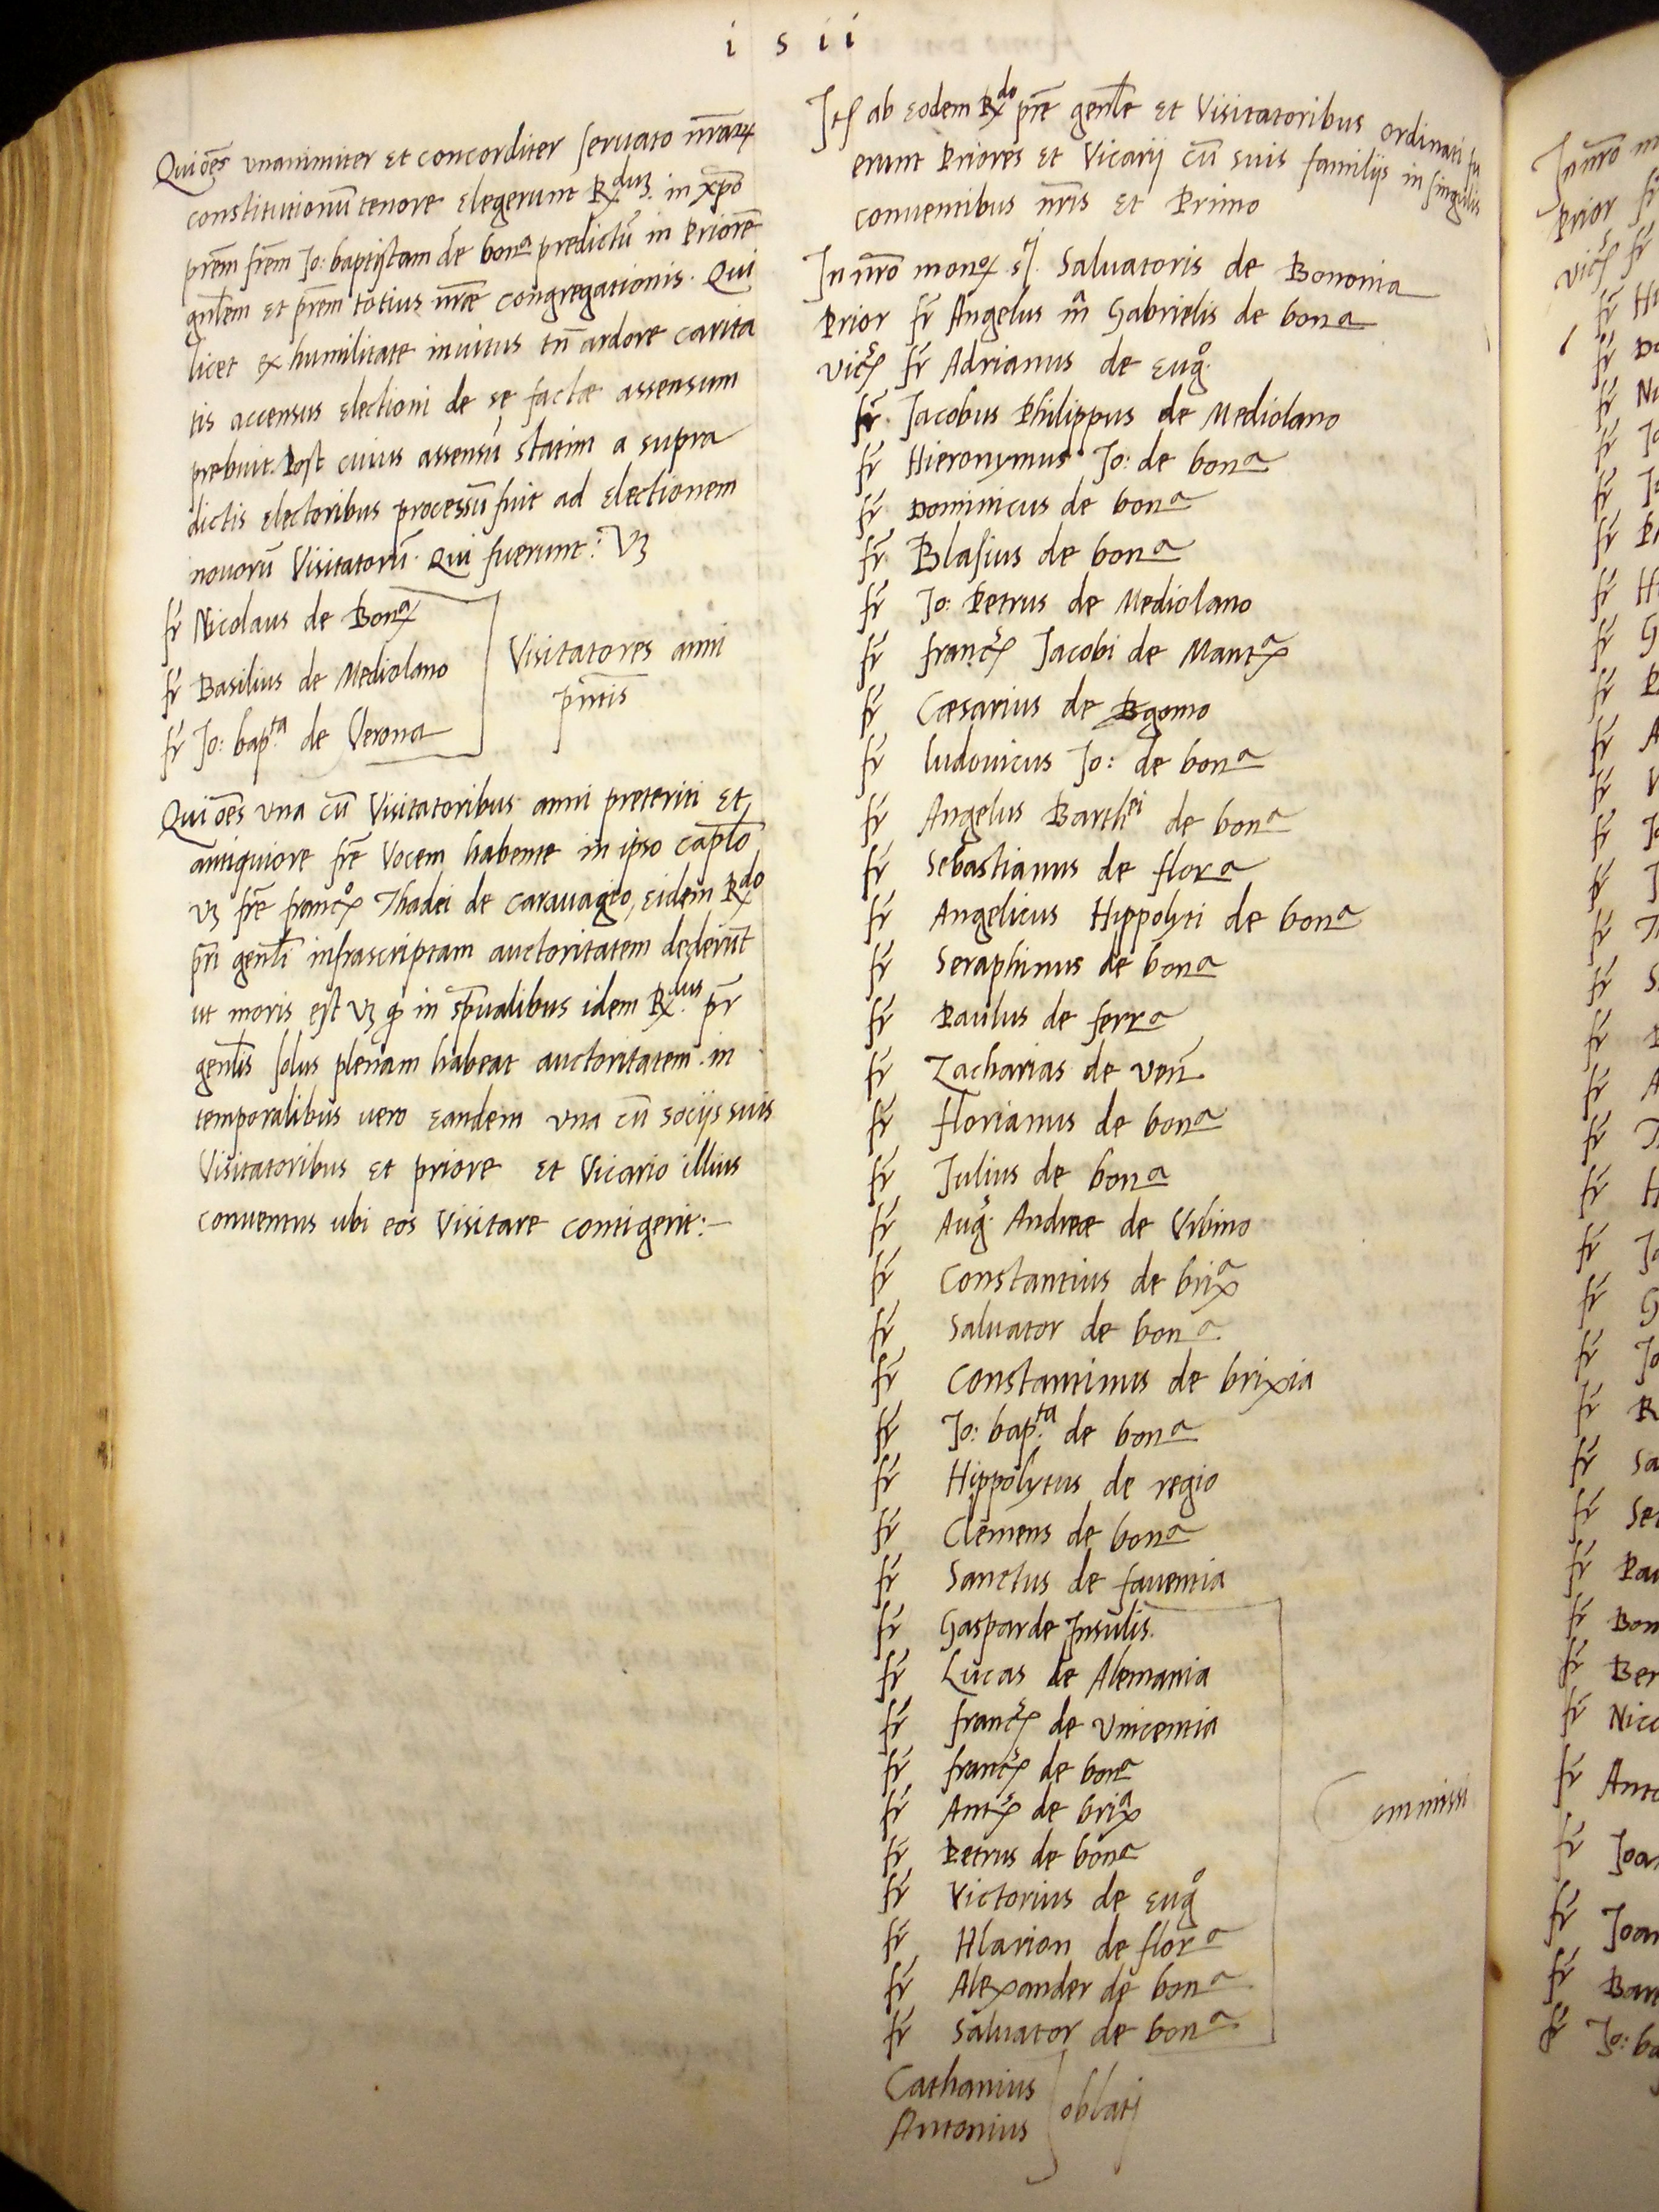 i s i i
Qui oēs vnanimiter et concorditer seruato nr̄arꝝ
constitutionū tenore elegerunt Rdus. in xp̄o
prēm frēm Jo: baptistam de bona predictū in Priorē
gnlem et prēm totius nr̄ae congregationis. Qui
licet ex humilitate inuitus tn̄ ardore carita
tis accensus electioni de se factae assensum
prebuit. Post cuius assensū statim a supra
dictis electoribus processū fuit ad electionem
nouorū Visitatorū. Qui fuerunt: Vꝫ
fr̄ Nicolaus de Bona
fr̄ Basilius de Mediolano
fr̄ Jo: bap.ta de Verona
Visitatores anni
pn̄tis
Qui oēs vna cū Visitatoribus anni preteriti et
antiquiore frē Vocem habente in ipso caplo
vꝫ frē franco Thadei de carauagio, eidem Rdo
pr̄i genli infrascriptam auctoritatem dederūt
ut moris est vꝫ ꝙ in spūalibus idem Rdus pr̄
genlis solus plenam habeat auctoritatem. in
temporalibus uero eandem vna cū socijs suis
Visitatoribus et priore et Vicario illius
conuentus ubi eos Visitare contigerit:-
Itꝭ ab eodem Rdo prē genle et Visitatoribus ordinati fu
erunt Priores et Vicarij cū suis familijs in singulis
conuentibus nr̄is et Primo
In nr̄o mono sti. Saluatoris de Bononia
Prior fr̄ Angelus m̄ Gabrielis de bona
vics fr̄ Adrianus de eugo
fr̄ Jacobus Philippus de Mediolano
fr̄ Hieronymus Jo: de bona
fr̄ Dominicus de bona
fr̄ Blasius de bona
fr̄ Jo: Petrus de Mediolano
fr̄ francs Jacobi de Manta
fr̄ Caesarius de Bgomo
fr̄ ludouicus Jo: de bona
fr̄ Angelus Barthei de bona
fr̄ Sebastianus de flora
fr̄ Angelicus Hippolyti de bona
fr̄ Seraphinus de bona
fr̄ Paulus de ferra
fr̄ Zacharias de ven̄
fr̄ florianus de bona
fr̄ Julius de bona
fr̄ Augs Andreae de Vrbino
fr̄ Constantius de brixa
fr̄ Saluator de bona
fr̄ Constantinus de brixia
fr̄ Jo: bap.ta de bona
fr̄ Hippolytus de regio
fr̄ Clemens de bona
fr̄ Sanctus de fauentia
fr̄ Gaspar de Insulis.
fr̄ Lucas de Alemania
fr̄ francs de Vincentia
fr̄ francs de bona
fr̄ Ants de brixa
fr̄ Petrus de bona
fr̄ Victorius de eugo
fr̄ Hlarion de flora
fr̄ Alexander de bona
fr̄ Saluator de bona
Commissi
Cathanius
Antonius
oblati
In nr̄o
Prior fr̄
vics fr̄